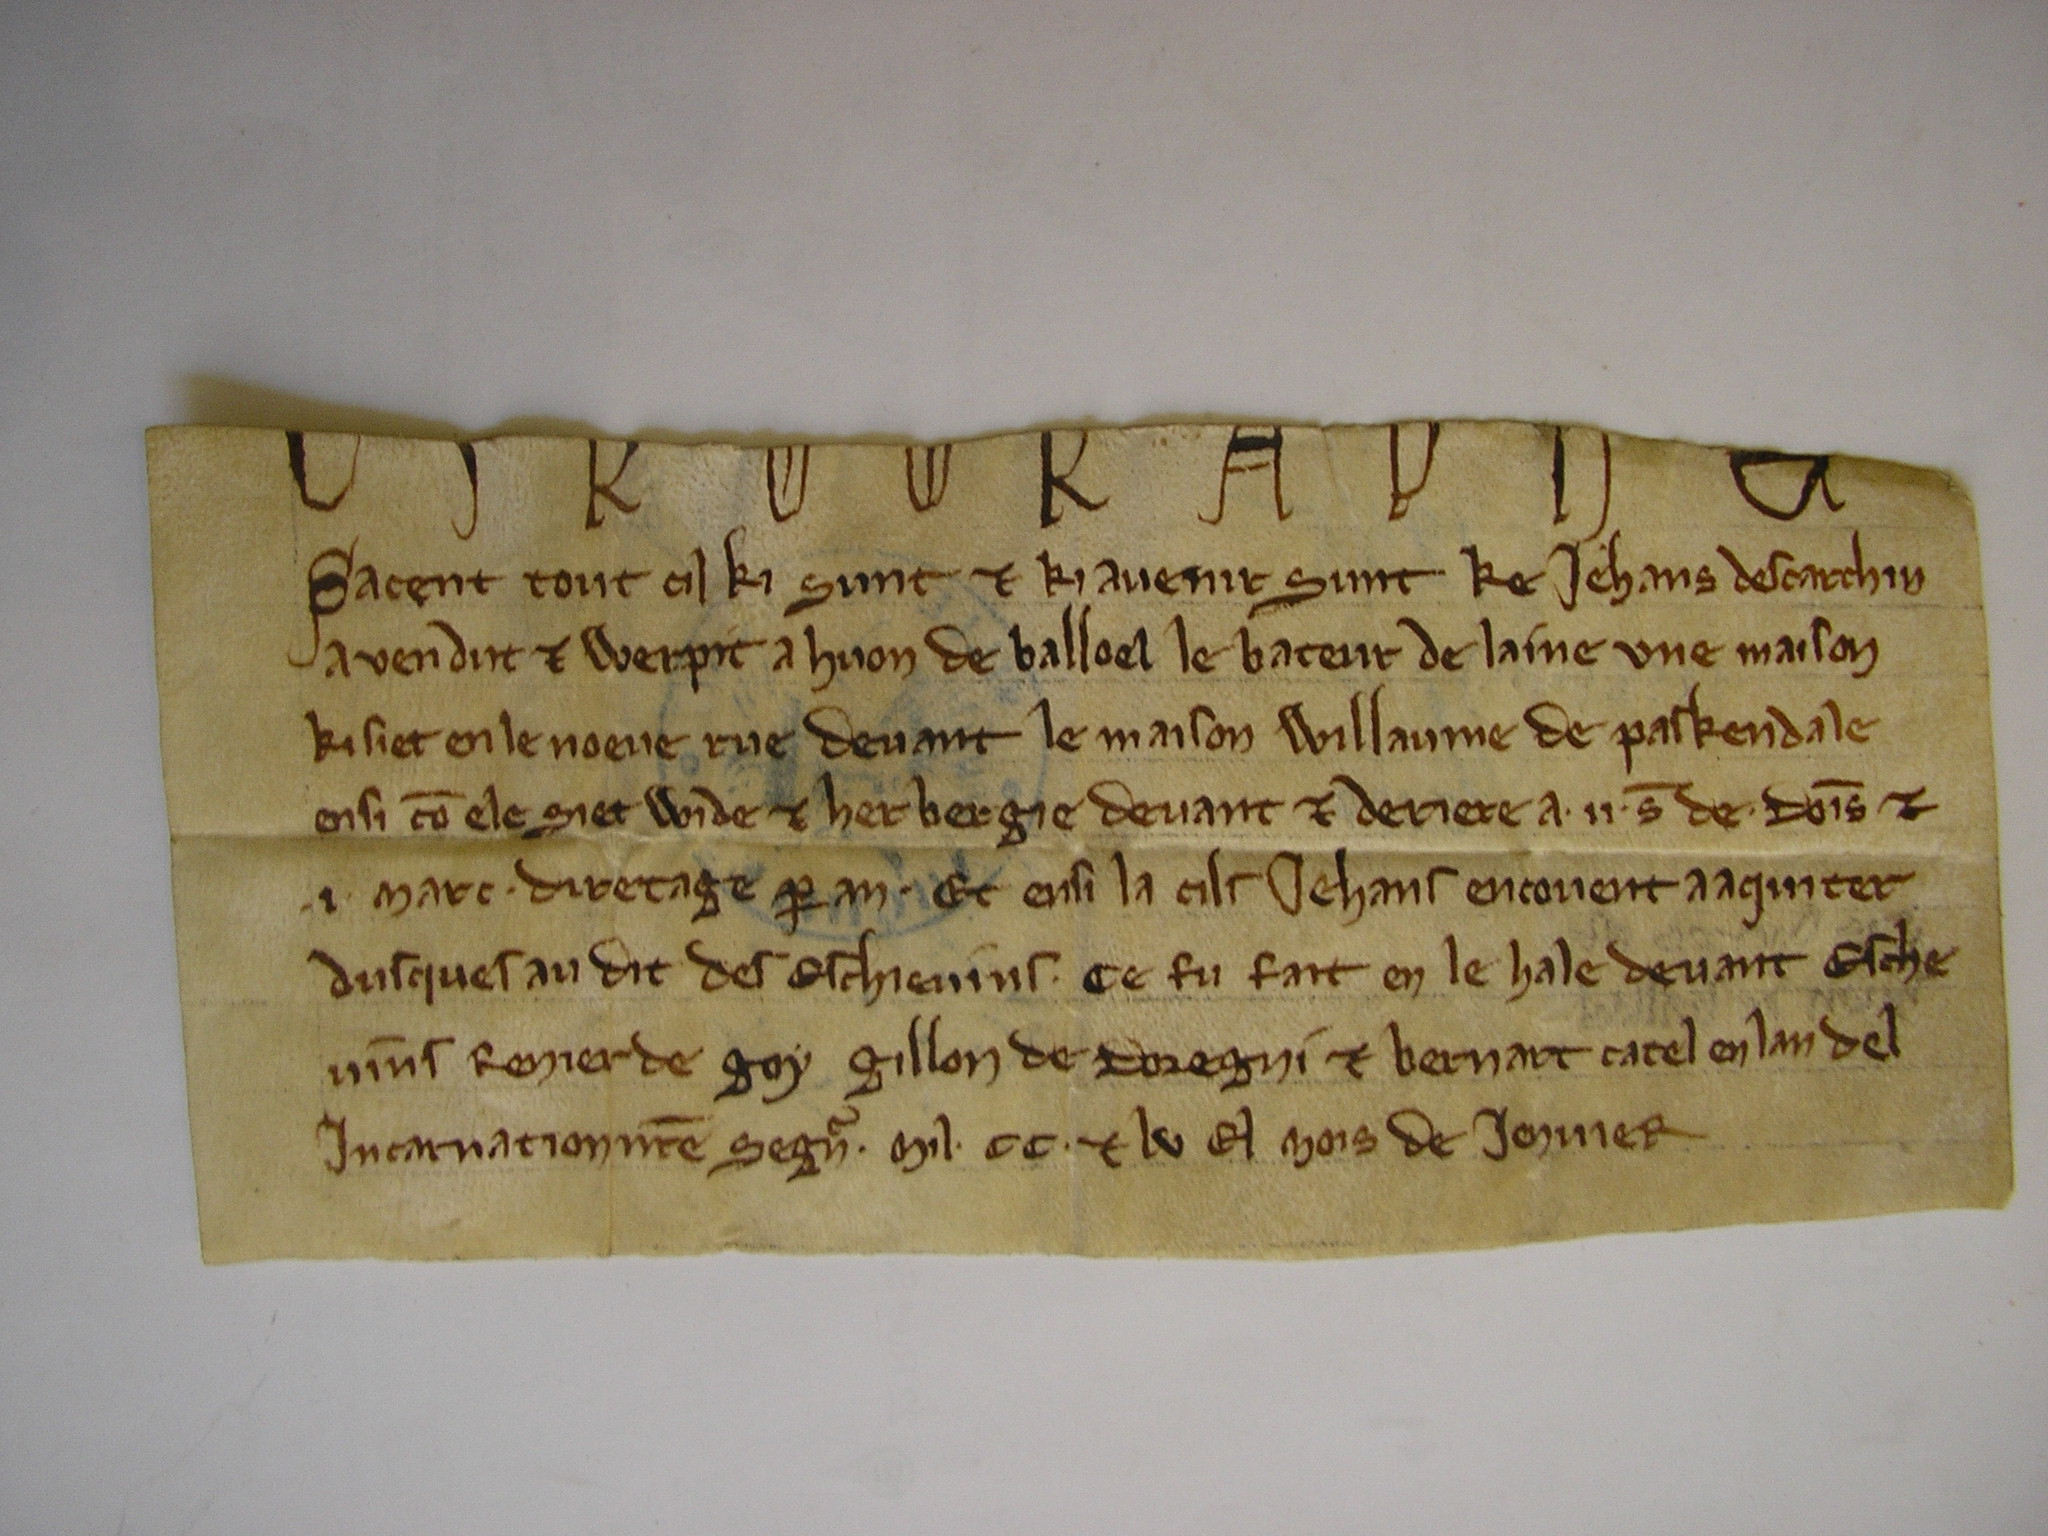 CYROGRAPHE
Sacent tout cil ki sunt ⁊ ki avenir sunt ke Jehans descarchin
a vendut ⁊ Werpit a huon de balloel le bateur de laine une maison
ki siet en le noeve rue devant le maison Willaume de paskendale
ensi cō ele siet Wide ⁊ herbergie devant ⁊ deriere a · ii · s̄ de · dois̄ ⁊
· i · marc · diretage ꝑ an · Et ensi la cils Jehans encovent a aquiter
dusques au dit des Eschievins · Ce fu fait en le hale devant Esche
vīns Renier de goy gillon de doregni ⁊ bernart catel en lan del
Incarnation nr̄e segn̄ · Mil · CC · ⁊ lv El mois de Jenvier